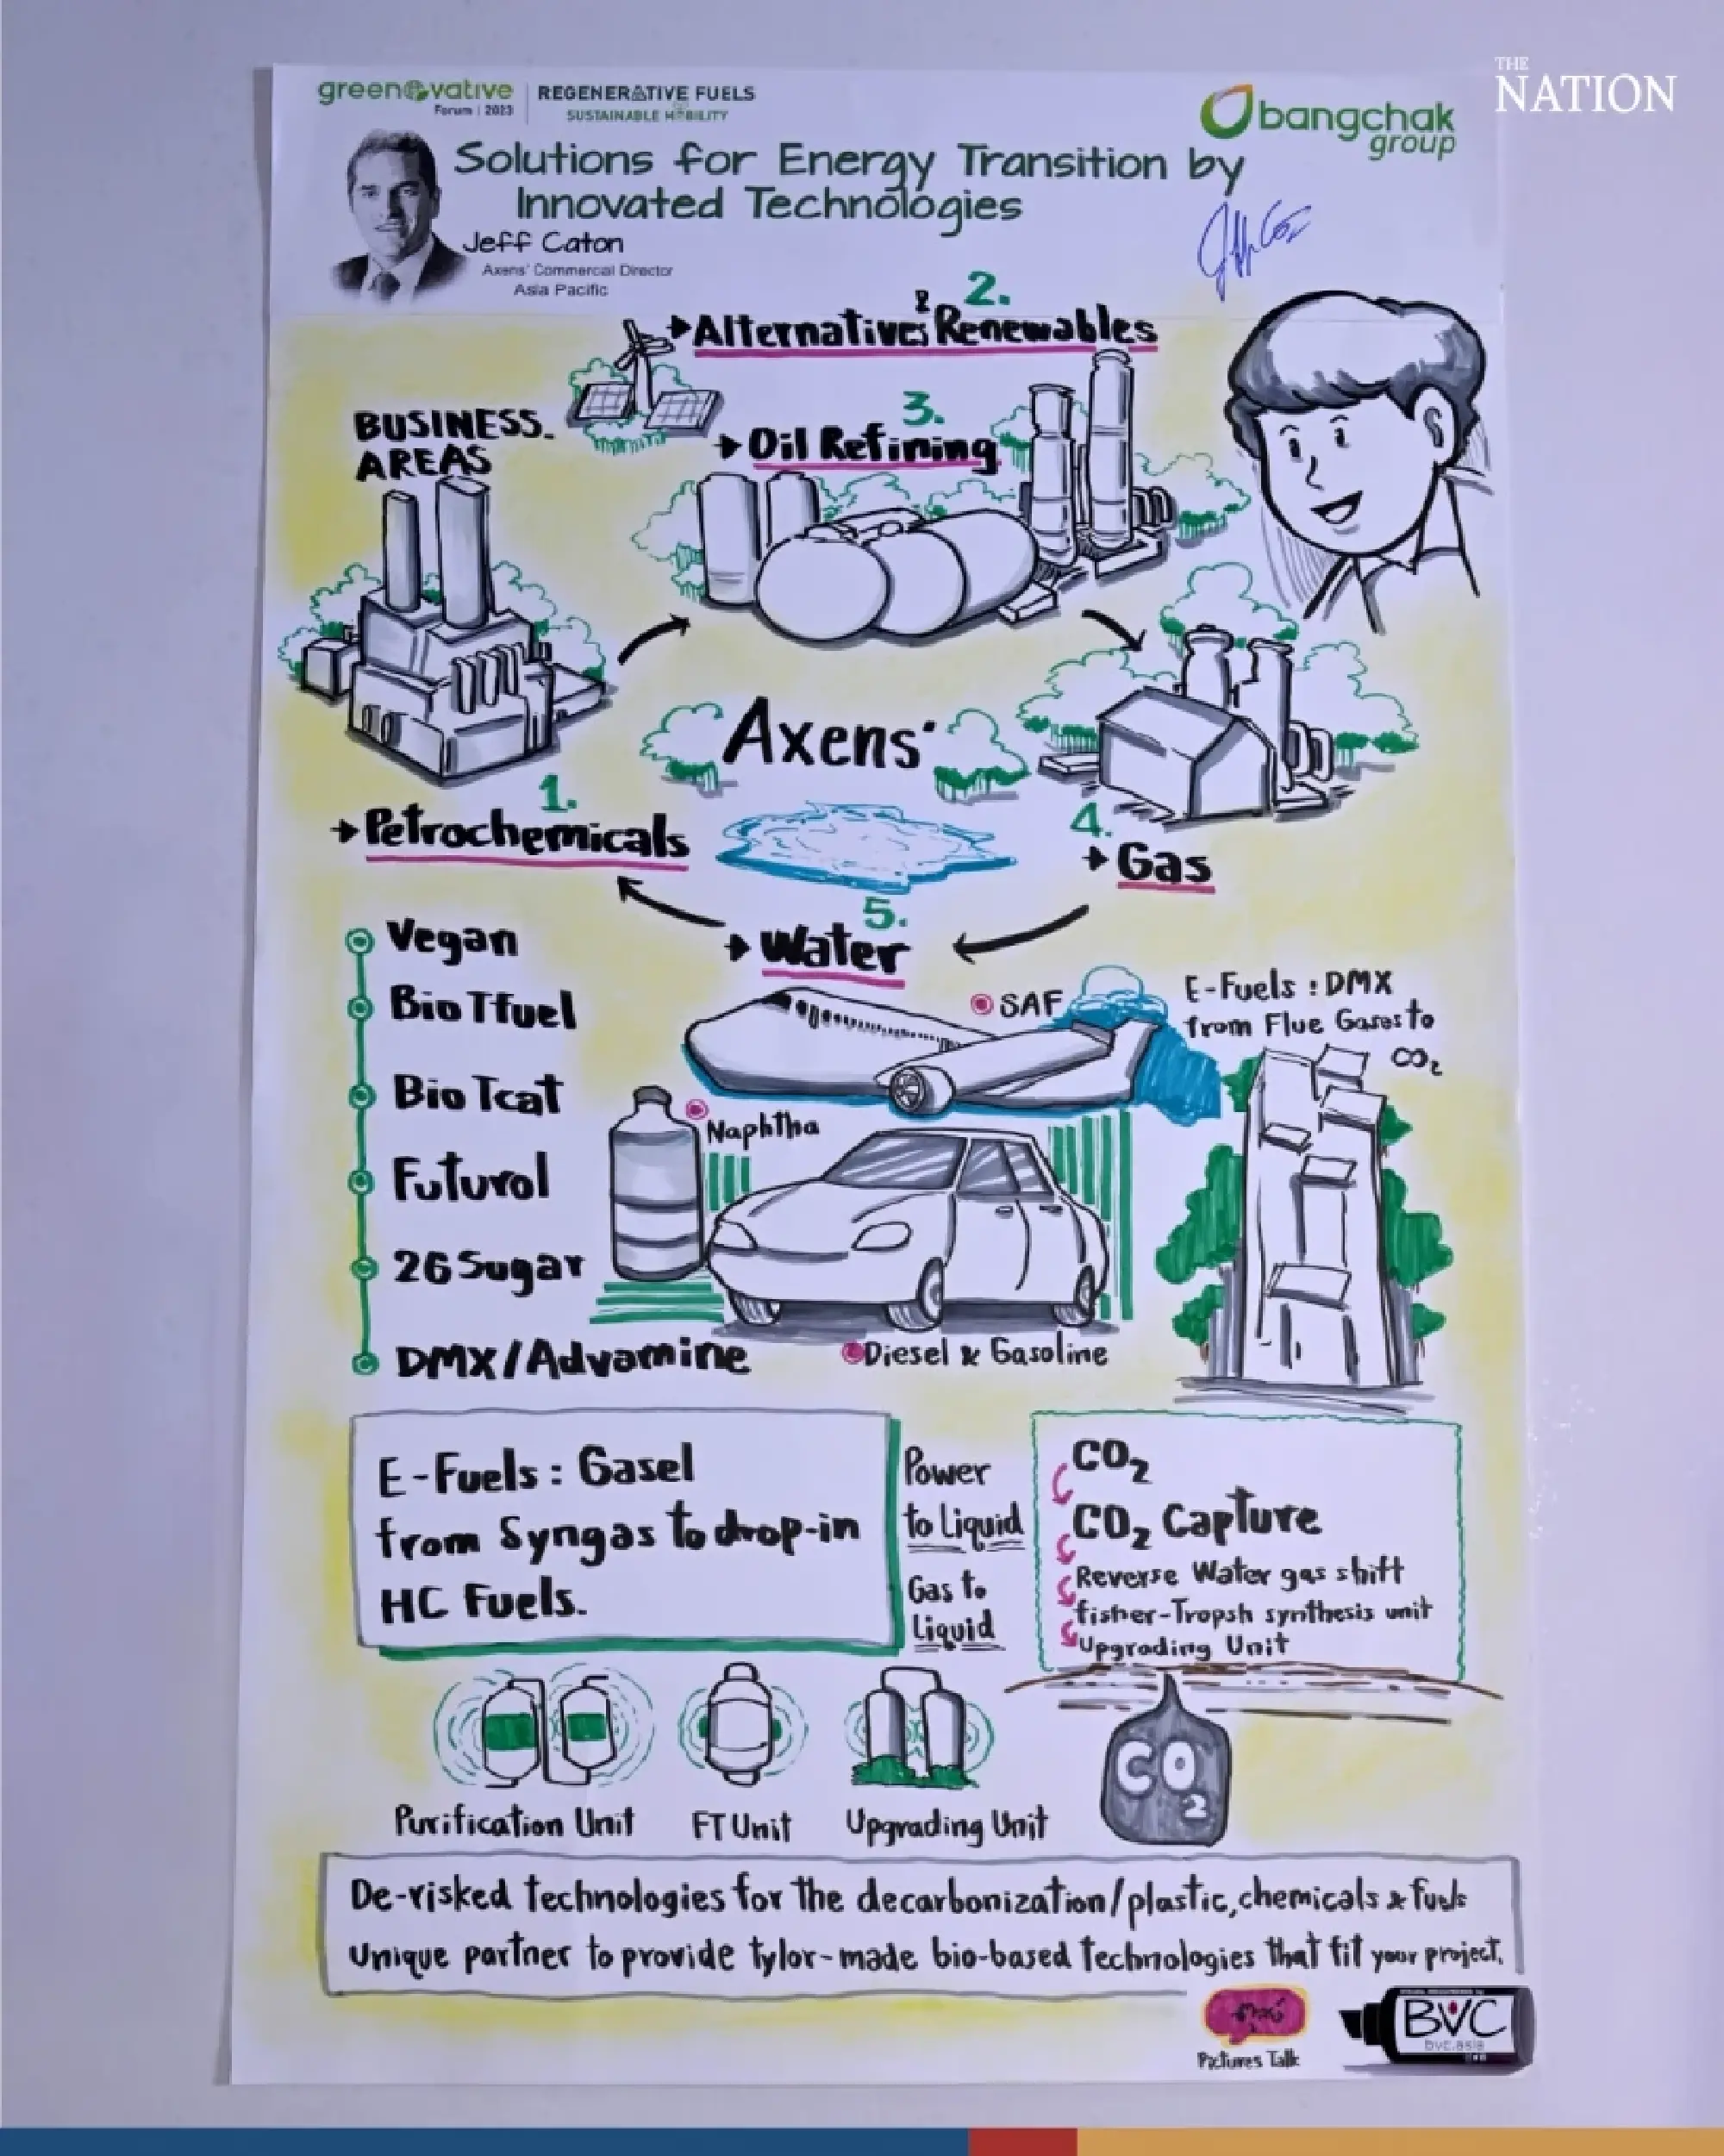 THE
NATION
greenovative
Forum | 2023
REGENERATIVE FUELS
SUSTAINABLE MOBILITY
bangchak
group
Solutions for Energy Transition by
Innovated Technologies
Jeff Caton
Axens' Commercial Director
Asia Pacific
2.
Alternatives & Renewables
BUSINESS.
AREAS
3.
Oil Refining
Axens'
1.
Petrochemicals
4.
Gas
5.
Water
Vegan
Bio Tfuel
Bio Tcat
Futurol
2G Sugar
DMX/Advamine
SAF
Naphtha
Diesel & Gasoline
E-Fuels : DMX
from Flue Gases to
CO2
E-Fuels : Gasel
from Syngas to drop-in
HC Fuels.
Power
to Liquid
Gas to
Liquid
CO2
CO2 Capture
Reverse Water gas shift
fisher-Tropsh synthesis unit
Upgrading Unit
Purification Unit
FT Unit
Upgrading Unit
CO2
De-risked technologies for the decarbonization/plastic, chemicals & fuels
Unique partner to provide tylor-made bio-based technologies that fit your project.
Pictures Talk
BVC
bvc.asia